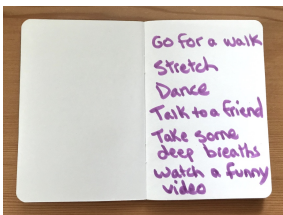 Go for a walk
Stretch
Dance
Talk to a friend
Take some
deep breaths
watch a funny
video